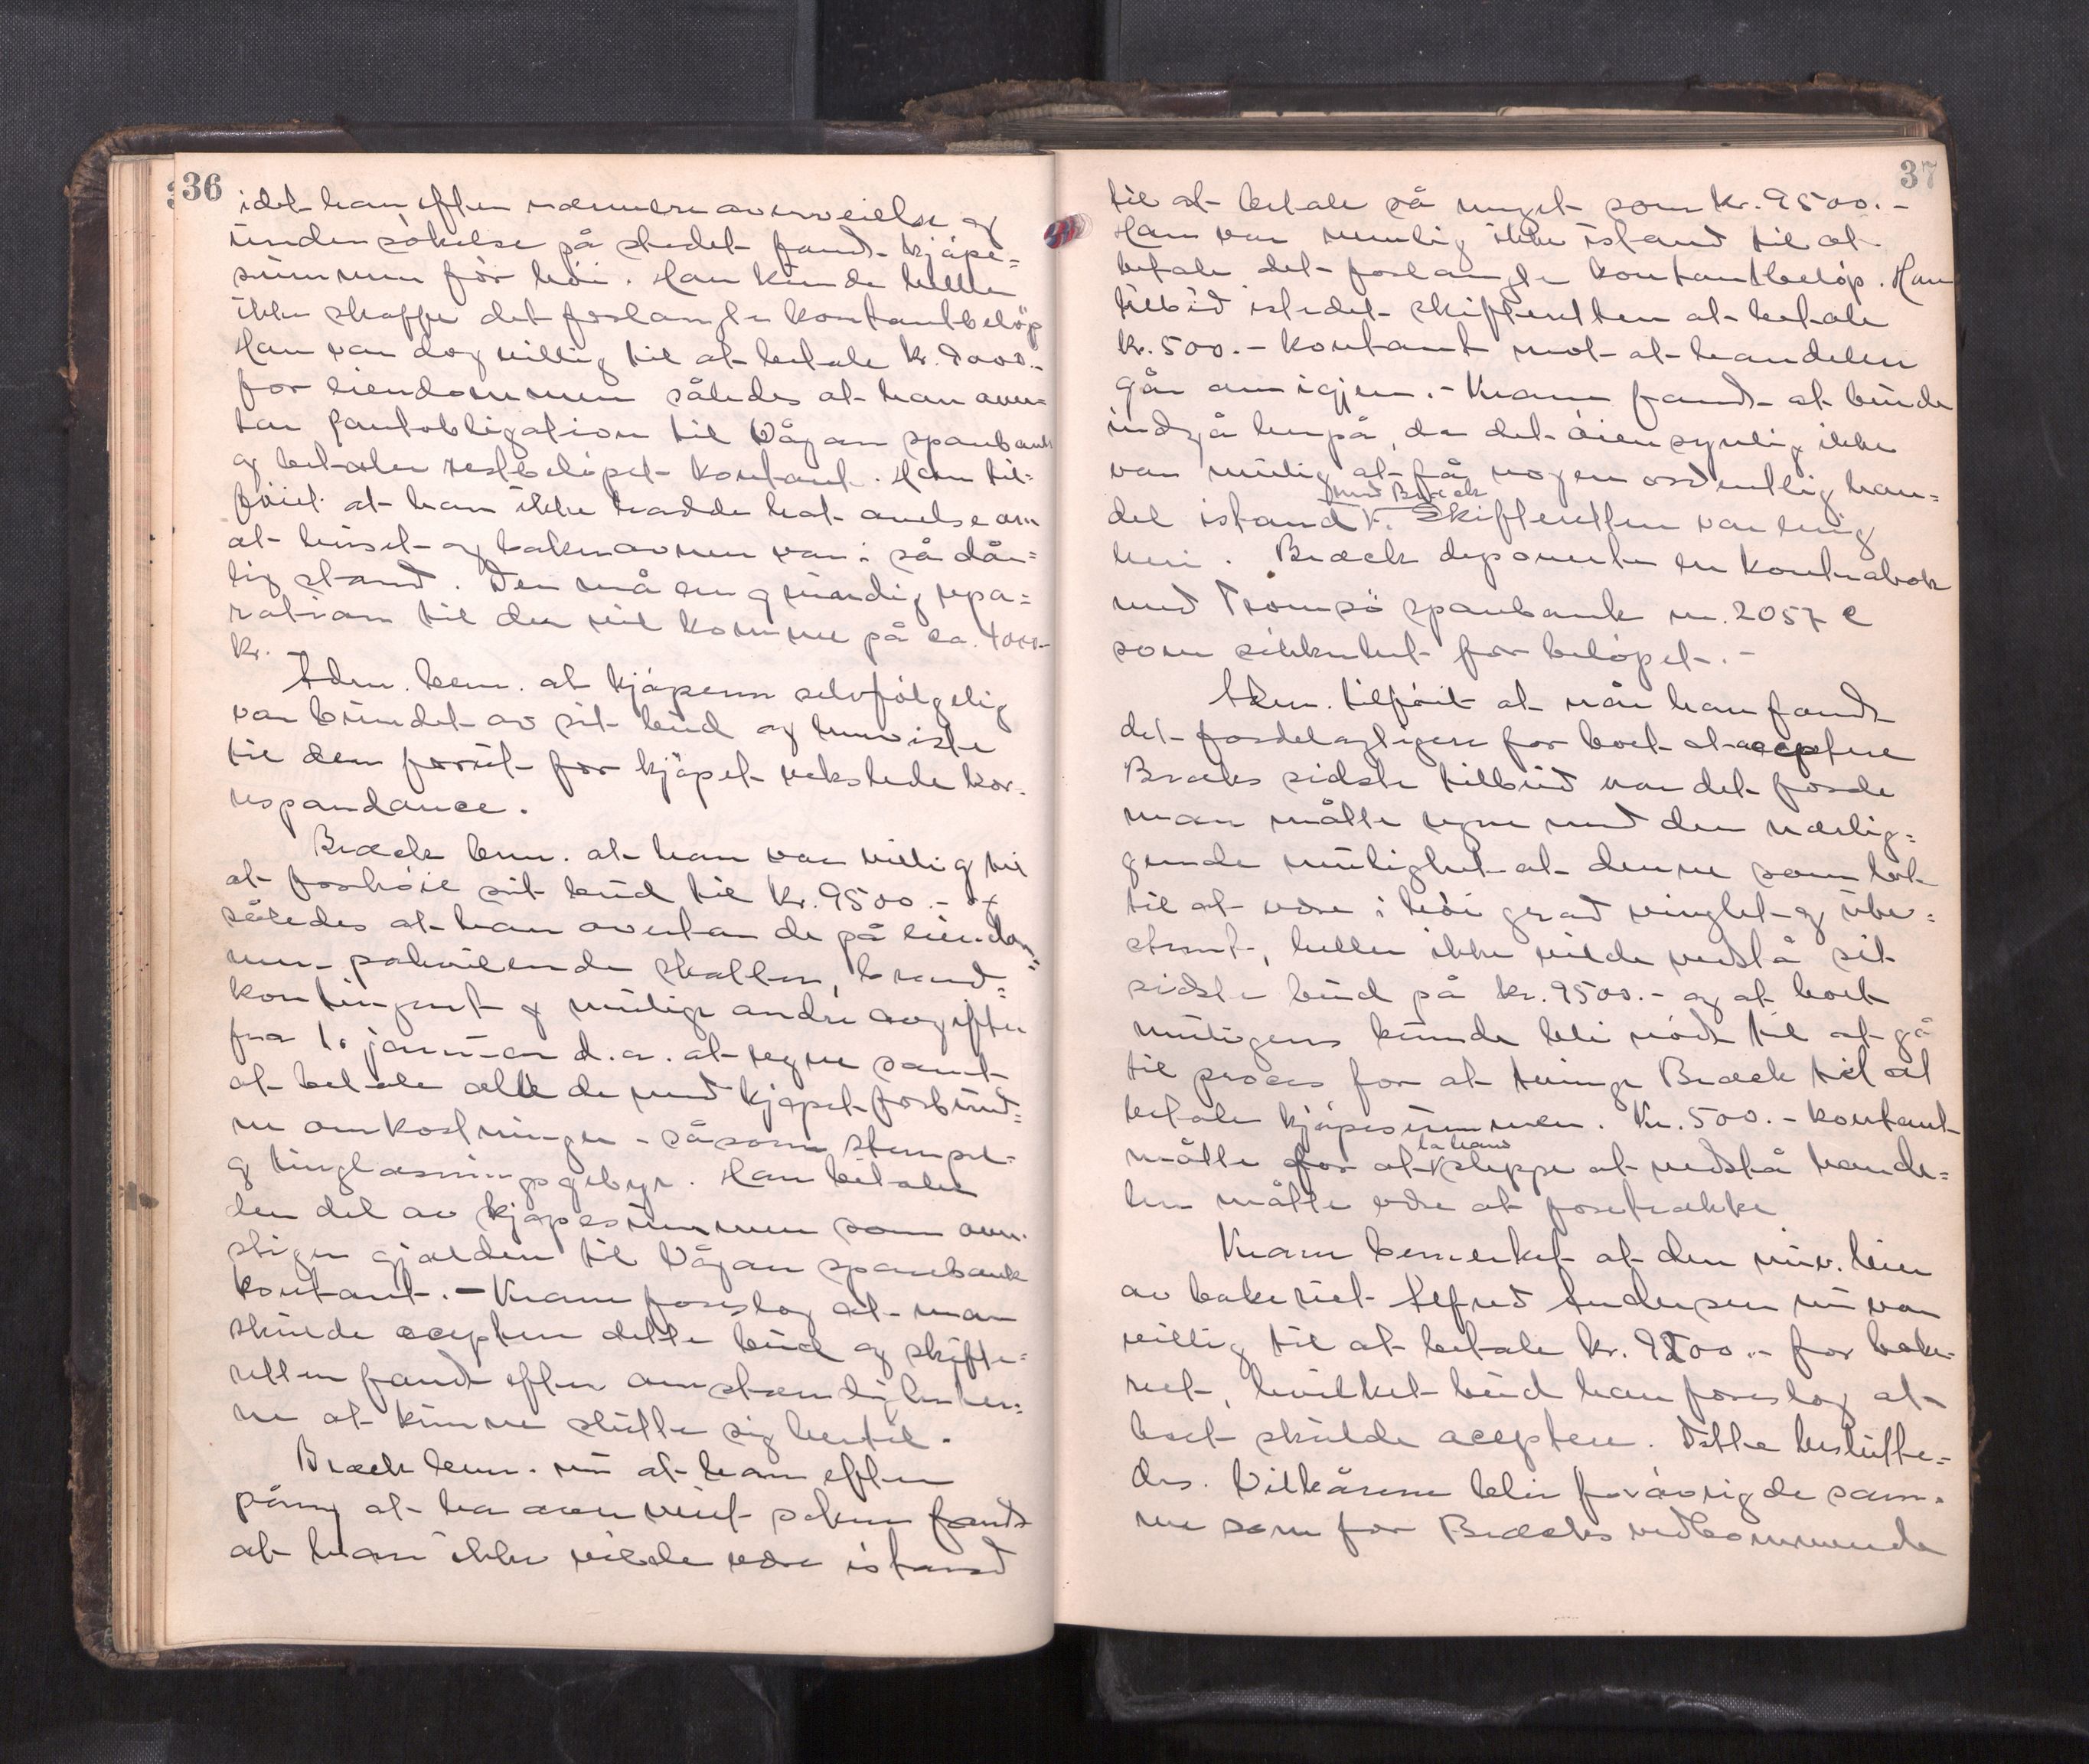 36
idet han efter nærmere overveielse og
undersøkelse på stedet fandt kjøpe=
summen for høi. Han kunde heller
ikke skaffe det forlangte kontantbeløp
Han var dog villig til at betale kr. 9000.-
for eiendommen således at han over=
tar pantobligation til Vågan sparebank
og betaler restbeløpet kontant. Han til=
føiet at han ikke hadde hat anelse om
at huset og bakerovnen var i så dår=
lig stand. Den må en grundig repa=
ration til der vil komme på ca. 4000.-
kr. -
Adm. bem. at kjøperen selvfølgelig
var bundet av sit bud og henviste
til den forut for kjøpet vekslede kor=
respondance.
Bræck bem. at han var villig til
at forhøie sit bud til kr. 9500.- og
således at han overtar de på eiendom=
men påhvilende skatter, brand=
kontingent og mulige andre avgifter
fra 1. januar d. a. at regne samt
at betale alle de med kjøpet forbund=
ne omkostninger - såsom stempel=
og tinglæsningsgebyr. Han betaler
den del av kjøpesummen som over=
stiger gjælden til Vågan sparebank
kontant. - Kram foreslog at man
skulde aceptere dette bud og skifte=
retten fandt efter omstændigheter=
ne at kunne slutte sig hertil.
Bræck bem. nu at han efter
påny at ha overveiet saken fandt
at han ikke vilde være istand
37
til at betale så meget som kr. 9500.-
Han var nemlig ikke istand til at
betale det forlangte kontantbeløp. Han
tilbød istedet skifteretten at betale
kr. 500.- kontant mot at handelen
går om igjen. - Kram fandt at burde
indgå herpå, da det øiensynlig ikke
var mulig at få nogen ordentlig han=
med Bræck
del istand V. Skifteretten var enig
heri. Bræck deponerte en kontrabok
med Tromsø sparebank nr. 2057 C
som sikkerhet for beløpet. -
Adm. tilføiet at når han fandt
det fordelagtigere for boet at aceptere
Bræcks sidste tilbud var det fordi
man måtte regne med den nærlig=
gende mulighet at denne som lot
til at være i høi grad vinglet og ube=
stemt, heller ikke vilde vedstå sit
sidste bud på kr. 9500.- og at boet
muligens kunde bli nødt til at gå
til proces for at tvinge Bræck til at
betale kjøpesummen. Kr. 500.- kontant
la ham
måtte for at V slippe at vedstå hande=
len måtte være at foretrække
Kram bemerket at den nuv. leier
av bakeriet Alfred Andersen nu var
villig til at betale kr. 9500.- for bake=
riet, hvilket bud han foreslog at
boet skulde aceptere. Dette beslutte=
des. Vilkårene blir forøvrig de sam=
me som for Bræcks vedkommende